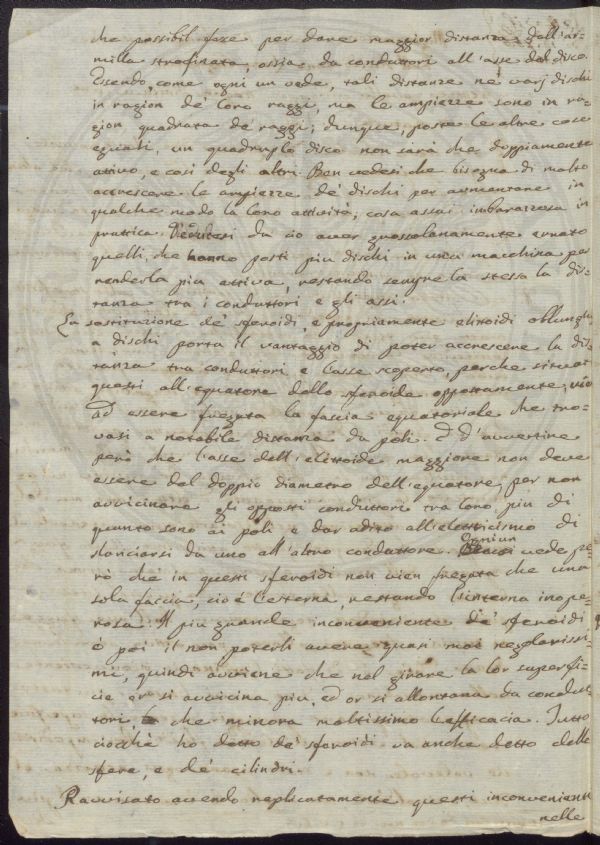 che possibil fare per dare maggior distanza dall'ar-
milla strofinata ossia da conduttori all'asse del disco.
Essendo, come ogni un vede, tali distanze ne varj dischi
in ragion de' loro raggi, ma le ampiezze sono in ra-
gion quadrata de' raggi; dunque, poste le altre cose
eguali, un quadruplo disco non sarà che doppiamente
attivo, e così degli altri. Ben vedesi che bisogna di molto
accrescere le ampiezze de' dischi per aumentare in
qualche modo la loro attività, cosa assai imbarazzosa in
prattica. da ciò aver grossolanamente errato
quelli, che hanno posti più dischi in una macchina per
renderla più attiva, restando sempre la stessa la dis-
tanza tra i conduttori e gli assi.
La sostituzione de' sferoidi, e propriamente elitoidi oblunghi
a dischi porta il vantaggio di poter accrescere la dis-
tanza tra conduttori e l'asse scoperto, perche situati
questi all'equatore dello sferoide oppostamente, vien
ad essere fregata la fascia equatoriale che tro-
vasi a notabile distanza da poli. È d'avvertire
però che l'asse dell'elittoide maggiore non deve
essere del doppio diametro dell'equatore, per non
avvicinare gli opposti conduttori tra loro più di
quanto sono ai poli e dar adito all'elettricismo di
slanciarsi da uno all'altro conduttore. Ogniun vede pe-
rò che in questi sferoidi non vien fregata che una
sola faccia, cioè l'esterna, restando l'interna inope-
rosa. Il più grande inconveniente de' sferoidi
è poi il non poterli avere quasi mai regolarissi-
mi, quindi avviene che nel girare la lor superfi-
cie or si avvicina più, ed or si allontana da condut-
tori, che minora moltissimo l'efficacia. Tutto
ciocchè ho detto de' sferoidi va anche detto delle
sfere, e de' cilindri.
Ravvisato avendo replicatamente questi inconvenienti
nelle